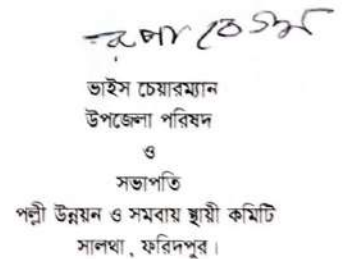 রূপা বেগম
ভাইস চেয়ারম্যান
উপজেলা পরিষদ
ও
সভাপতি
পল্লী উন্নয়ন ও সমবায় স্থায়ী কমিটি
সালথা, ফরিদপুর।